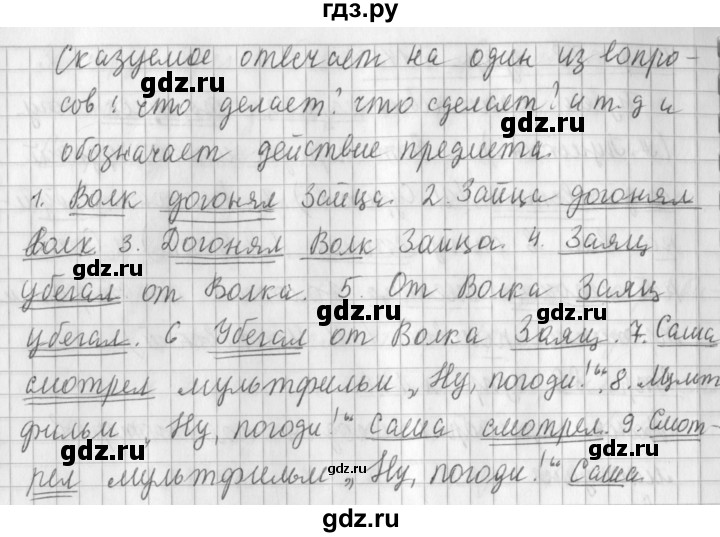 гдз.ру
Сказуемое отвечает на один из вопро-
сов: что делает? что сделает? и т. д и
gdz.ru
gdz.ru
обозначает действие предмета.
1. Волк догонял Зайца. 2. Зайца догонял
gdz.ru
Волк 3. Догонял Волк Зайца. 4. Заяц
gdz.ru
gdz.ru
убегал от Волка. 5. От Волка Заяц
gdz.ru
убегал. 6 Убегал от Волка Заяц. 7. Саша
gdz.ru
смотрел мультфильм „Ну, погоди!“. 8. Мульт
фильм „Ну, погоди!“ Саша смотрел. 9. Смот-
gdz.ru
gdz.ru
рел мультфильм „Ну, погоди!“ Саша
gdz.ru
gdz.ru
gdz.ru